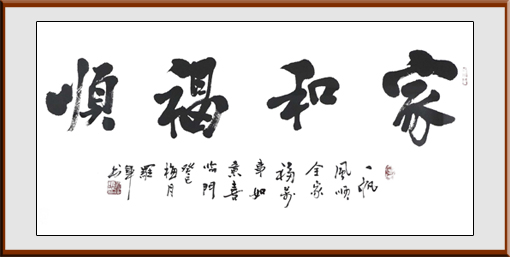 家和福順
一帆
風順
全家
福萬
事如
意喜
临門
癸巳
梅月
羅
軍书